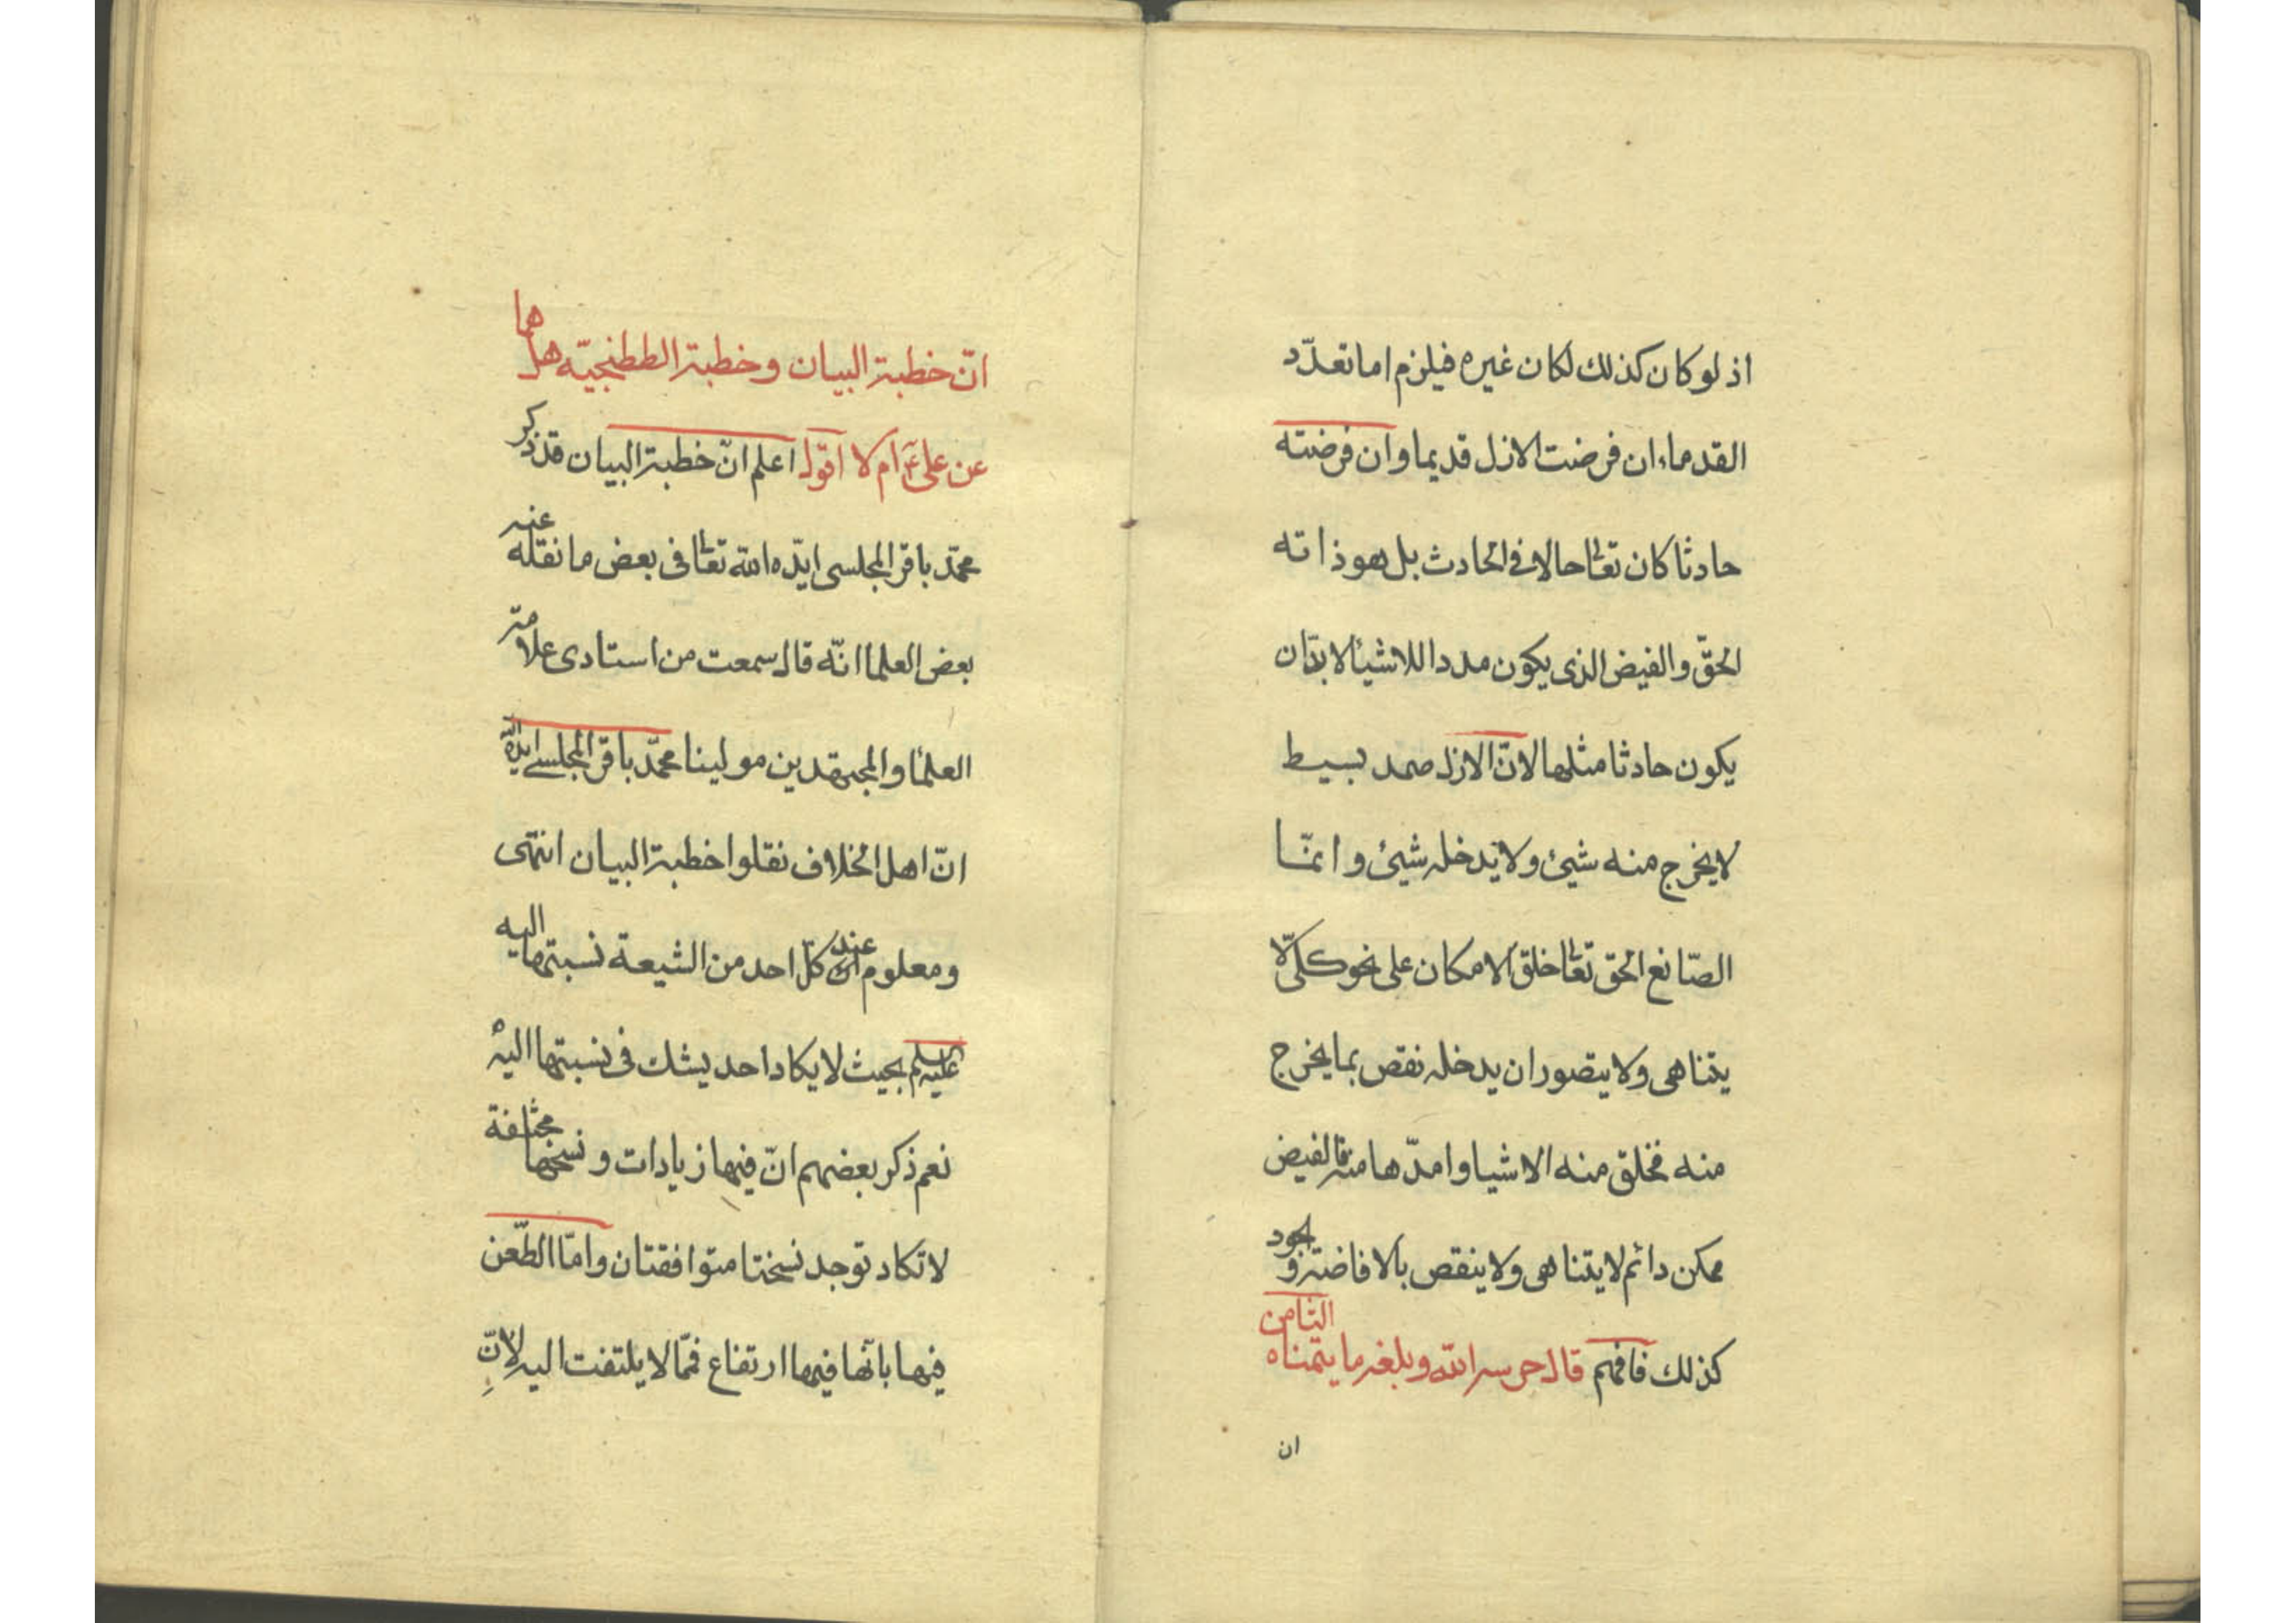 اذ لو كان كذلك لكان غيره فيلزم اما تعدّد
القدماء ان فرضت الازل قديما وان فرضته
حادثا كان تعالى حالا فى الحادث بل هو ذاته
الحقّ والفيض الذى يكون مددا للاشيأ لا بدّ ان
يكون حادثا مثلها لانّ الازل صمد بسيط
لا يخرج منه شيئ ولا يدخله شيئ وانّما
الصّانع الحق تعالى خلق الامكان على نحو كلّى لا
يتناهى ولا يتصور ان يدخله نقص بما يخرج
منه فخلق منه الاشيا وامدّها منه فالفيض
ممكن دائم لا يتناهى ولا ينقص بالافاضة والجود
كذلك فافهم قال حرسه الله وبلغه ما يتمناه الثامن
ان
انّ خطبة البيان وخطبة الططنجيّه هل هما
عن على ع ام لا اقول اعلم انّ خطبة البيان قد ذكر
محمّد باقر المجلسى ايّده الله تعالى فى بعض ما نقله عنه
بعض العلما انّه قال سمعت من استادى علامة
العلمأ والمجتهدين مولينا محمّد باقر المجلسے ايده الله
انّ اهل الخلاف نقلوا خطبة البيان انتهى
ومعلوم عند كلّ احد من الشيعة نسبتها اليه
عليه السلم بحيث لا يكاد احد يشك فى نسبتها اليه
نعم ذكر بعضهم انّ فيها زيادات ونسخها مختلفة
لا تكاد توجد نسختا متوافقتان وامّا الطّعن
فيها بانّها فيها ارتفاع فممّا لا يلتفت اليه لانّ